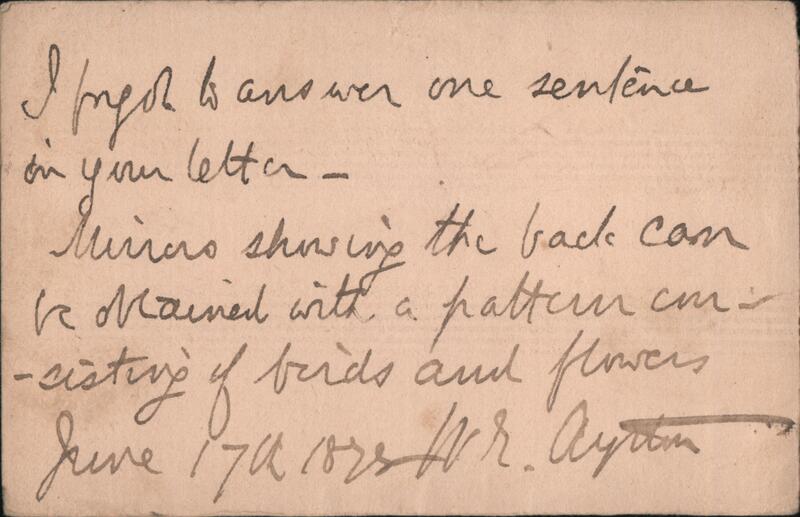 I forgot to answer one sentence
in your letter –
Mirrors showing the back can
be obtained with a pattern con-
-sisting of birds and flowers
June 17th 1878 W. E. Ayrton